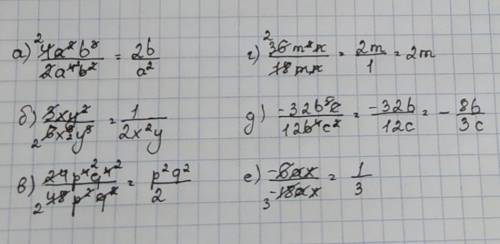 а) 4a²b³/2a⁴b² = 2b/a²
б) 3xy²/6x³y³ = 1/2x²y
в) 24p⁴q⁴/48p²q² = p²q²/2
г) 36m²n/18mn = 2m/1 = 2m
д) -32b⁵c/12b⁴c² = -32b/12c = - 8b/3c
е) -6ax/-18ax = 1/3